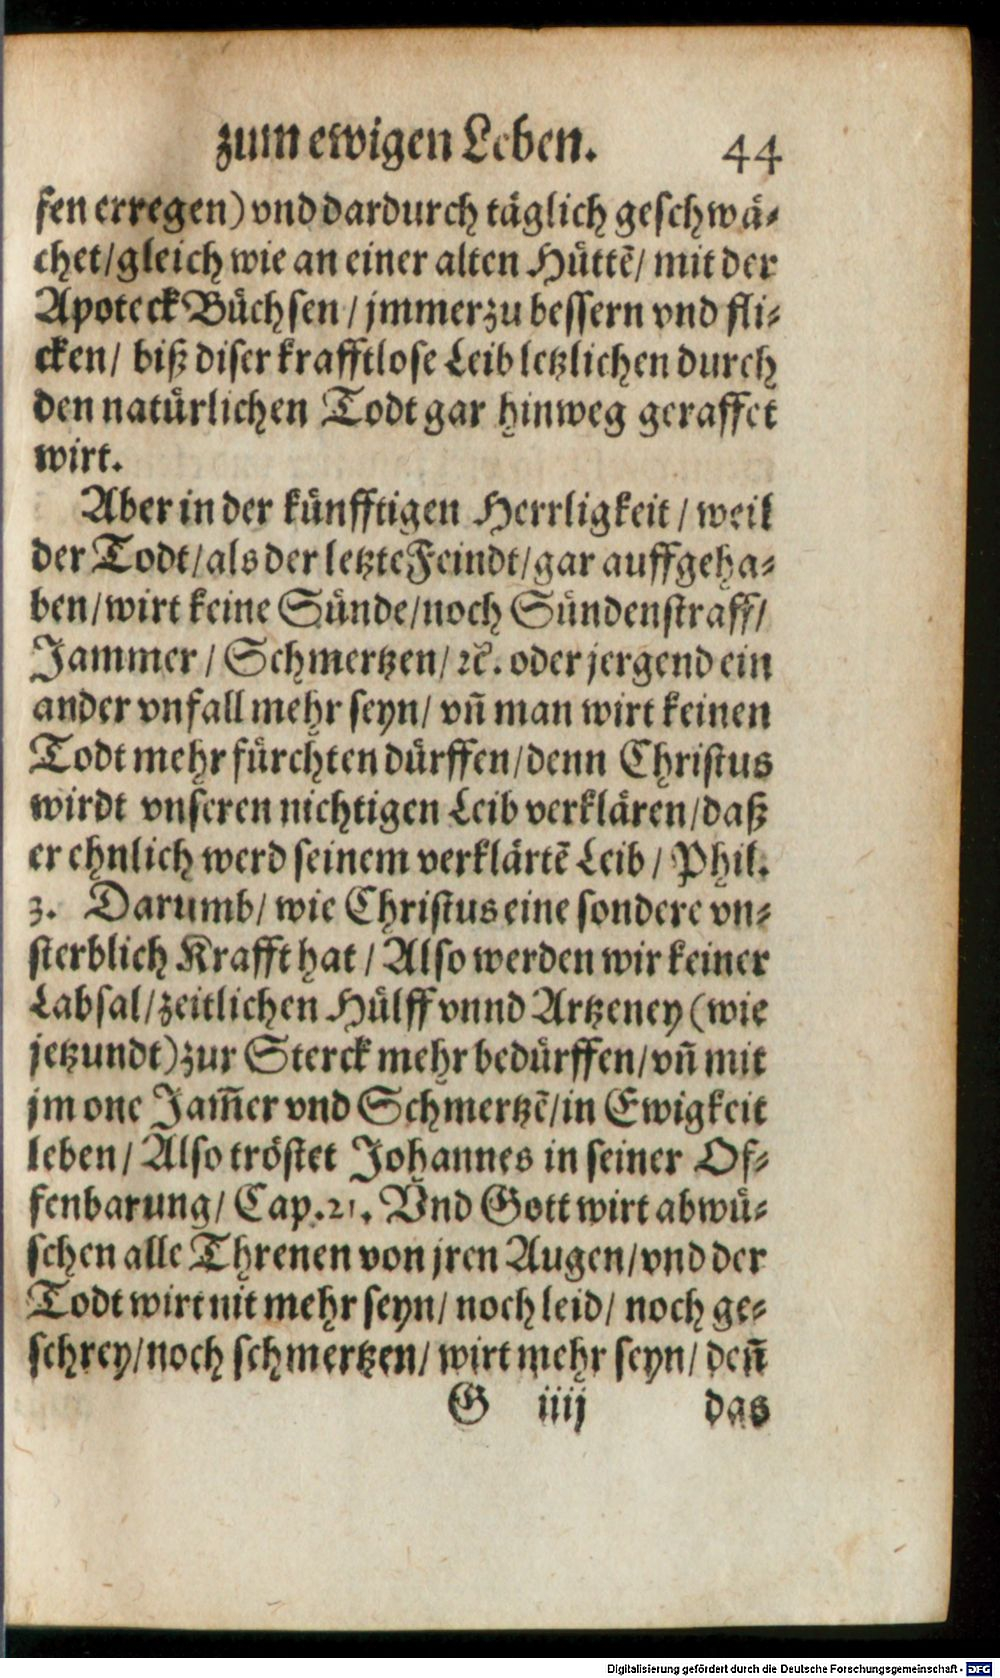 zum ewigen Leben. 44
sen erregen) vnd dardurch täglich geschwä-
chet/ gleich wie an einer alten Hüttē/ mit der
Apoteck Büchsen / jmmerzu bessern vnd fli-
cken/ biß diser krafftlose Leib letzlichen durch
den natürlichen Todt gar hinweg geraffet
wirt.
Aber in der künfftigen Herrligkeit / weil
der Todt/ als der letzte Feindt/ gar auffgeha-
ben/ wirt keine Sünde/ noch Sündenstraff/
Jammer / Schmertzen/ ꝛc̄. oder jergend ein
ander vnfall mehr seyn/ vn̄ man wirt keinen
Todt mehr fürchten dürffen/ denn Christus
wirdt vnseren nichtigen Leib verklären/ daß
er ehnlich werd seinem verklärtē Leib / Phil.
3. Darumb/ wie Christus eine sondere vn-
sterblich Krafft hat / Also werden wir keiner
Labsal/ zeitlichen Hülff vnnd Artzeney (wie
jetzundt) zur Sterck mehr bedürffen/ vn̄ mit
jm one Jam̄er vnd Schmertzē/ in Ewigkeit
leben/ Also tröstet Johannes in seiner Of-
fenbarung/ Cap. 21. Vnd Gott wirt abwü-
schen alle Threnen von jren Augen/ vnd der
Todt wirt nit mehr seyn/ noch leid/ noch ge-
schrey/ noch schmertzen/ wirt mehr seyn/ den̄
G iiij das
Digitalisierung gefördert durch die Deutsche Forschungsgemeinschaft - DFG